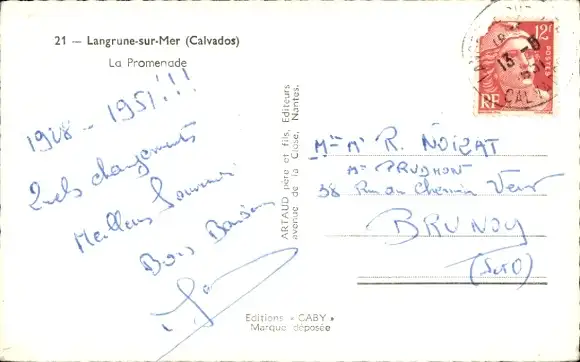 21 — Langrune-sur-Mer (Calvados)
La Promenade
1928 - 1951!!!
Quels changements
Meilleurs Souvenirs
Bons Baisers
ARTAUD père et fils, Editeurs
avenue de la Close, Nantes.
Editions « GABY »
Marque déposée
12F
POSTES
RF
13-8
1951
M. R. NOIZAT
PRUDHON
38 Rue du Chemin Vert
BRUNOY
(S et O)